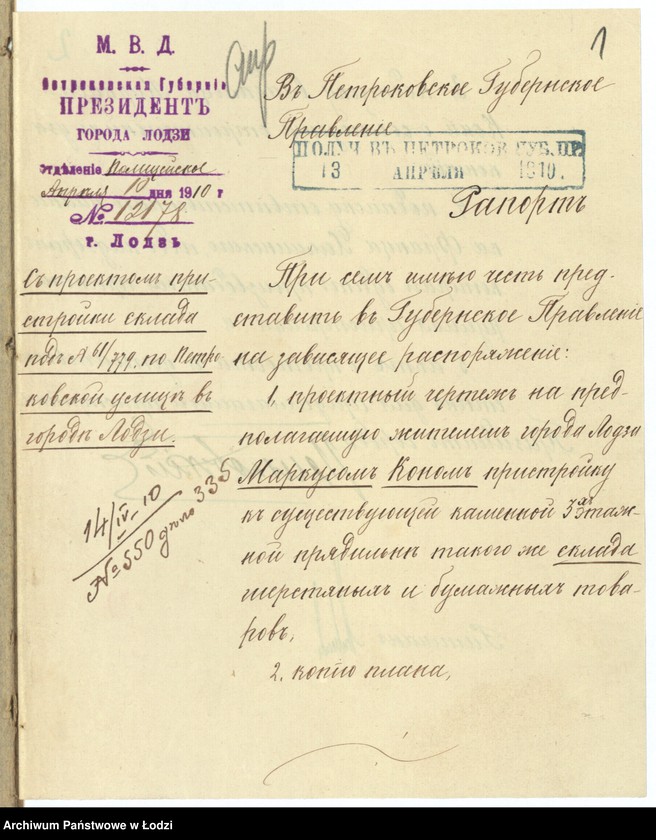 1
М. В. Д.
Петроковская Губернія
ПРЕЗИДЕНТЪ
ГОРОДА ЛОДЗИ
Отдѣленіе Полицейское
Апрѣля 10 дня 1910 г
№ 12178
г. Лодзь
Въ Петроковское Губернское
Правленіе
ПОЛУЧ. ВЪ ПЕТРОКОВ. ГУБ. ПР.
13 АПРѢЛЯ 1910.
Рапортъ
Съ проектомъ при-
стройки склада
подъ № 61/779. по Петро
ковской улицѣ въ
городѣ Лодзи.
14/IV 10
№ 550 дѣло 335
При семъ имѣю честь пред-
ставить въ Губернское Правленіе
на зависящее распоряженіе:
1, проектный чертежъ на пред-
полагаемую жителемъ города Лодзи
Маркусомъ Кономъ пристройку
къ существующей каменной 3хъ этаж-
ной прядильнѣ такого же склада
шерстяныхъ и бумажныхъ това-
ровъ,
2, копію плана,
Archiwum Państwowe w Łodzi